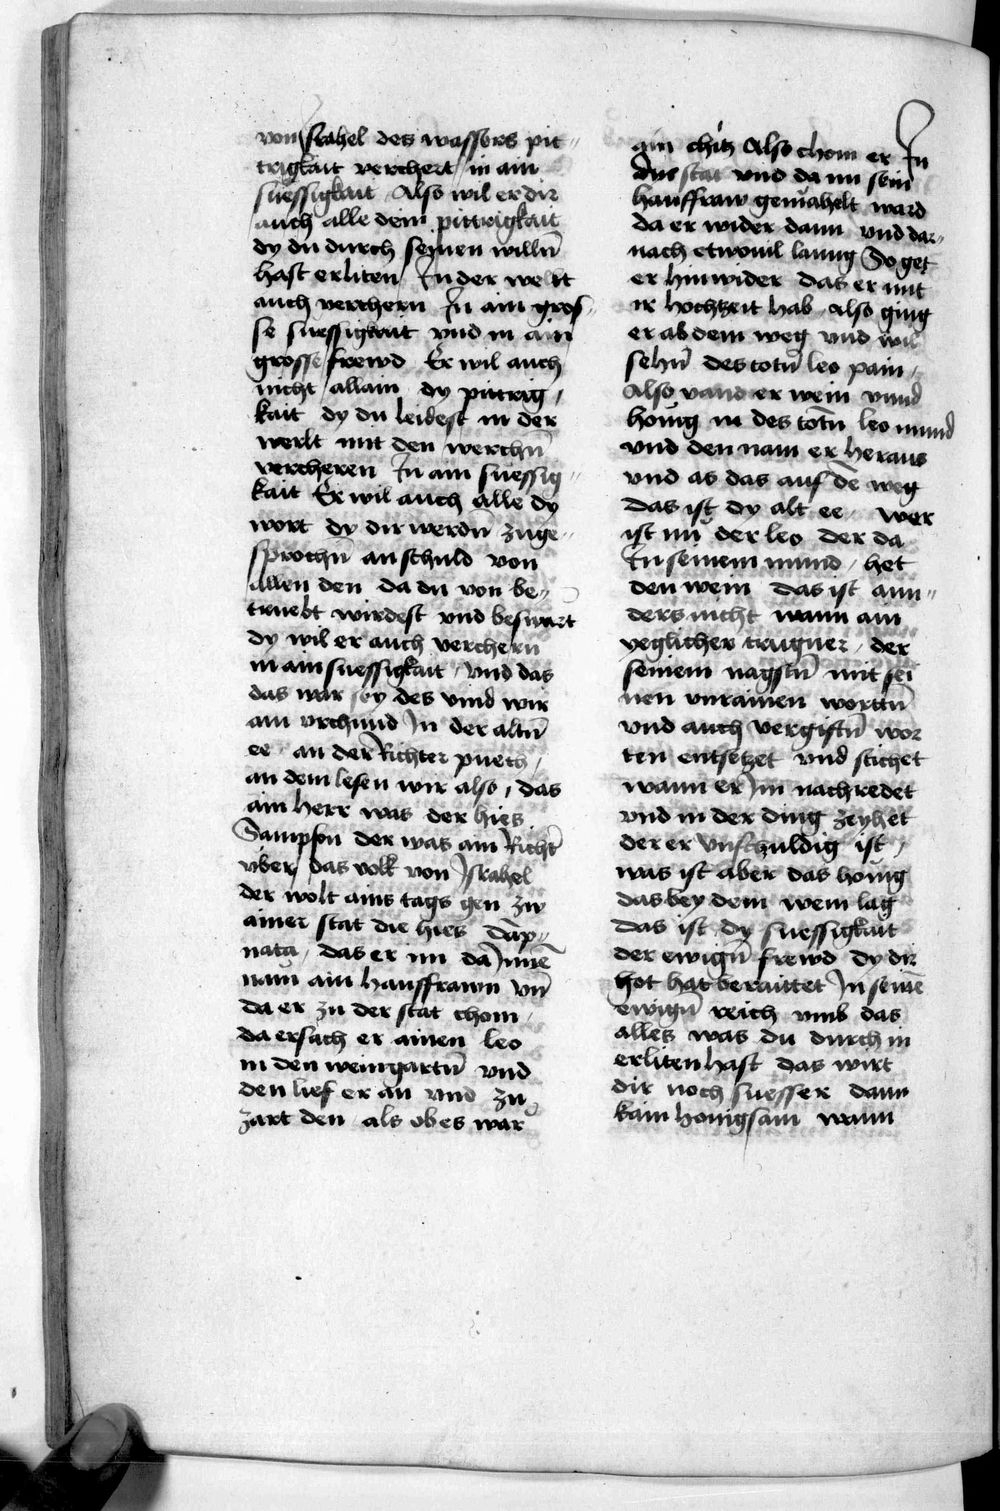 von Israhel des wassers pit„
trigkait verchert in ain
suessigkait Also wil er dir
auch alle dein pittrigkait
dy du durch seinen willn̄
hast erliten In der welt
auch verchern In ain gros„
se suessigkait vnd in ain
grosse frewd Er wil auch
nicht allain dy pittrig„
kait dy du leidest in der
werlt mit den werchn̄
vercheren In ain suessig„
kait Er wil auch alle dy
wort dy dir werdn̄ zuge„
sprochn̄ an schuld von
allen den da du von be„
truebt wirdest vnd beswart
dy wil er auch verchern
in ain suessigkait vnd das
das war sey des vind wir
ain vrchund In der altn̄
ee an der Richter puech
an dem lesen wir also, das
ain herr was der hies
Sampson der was ain Richt̄
vber das volk von Israhel
der wolt ains tags gen zw
ainer stat die hies Damp„
nata, das er im da Innē
nam ain hausfrawn vn̄
da er zu der stat chom
da ersach er ainen leo
in den weingartn̄ vnd
den lief er an vnd zu
zart den als ob es war
ain chitz Also chom er In
die stat vnd da im sein
hausfraw gemahelt ward
da er wider dann vnd dar„
nach etwouil lanng So get
er hinwider das er mit
ir hochzeit hab Also ging
er ab dem weg vnd wil
sehn̄ des totn̄ leo pain
Also vand er wein vnnd
honig in des totn̄ leo mund
vnd den nam er heraus
vnd as das auf dē weg
das ist dy alt ee wer
ist nu der leo der da
In seinem mund het
den wein das ist ann„
ders nicht wann ain
yeglicher trugner der
seinem nagstn̄ mit sei
nen vnrainen worttn̄
vnd auch vergiftn̄ wor
ten entsetzet vnd stichet
wann er Im nachredet
vnd in der ding zeyhet
der er vnschuldig ist
was ist aber das honig
das bey dem wein lag
das ist dy suessigkait
der ewign̄ frewd dy dir
got hat beraittet In seinē
ewign̄ reich vmb das
alles was du durch in
erliten hast das wirt
dir noch suesser dann
kain honigsam wann